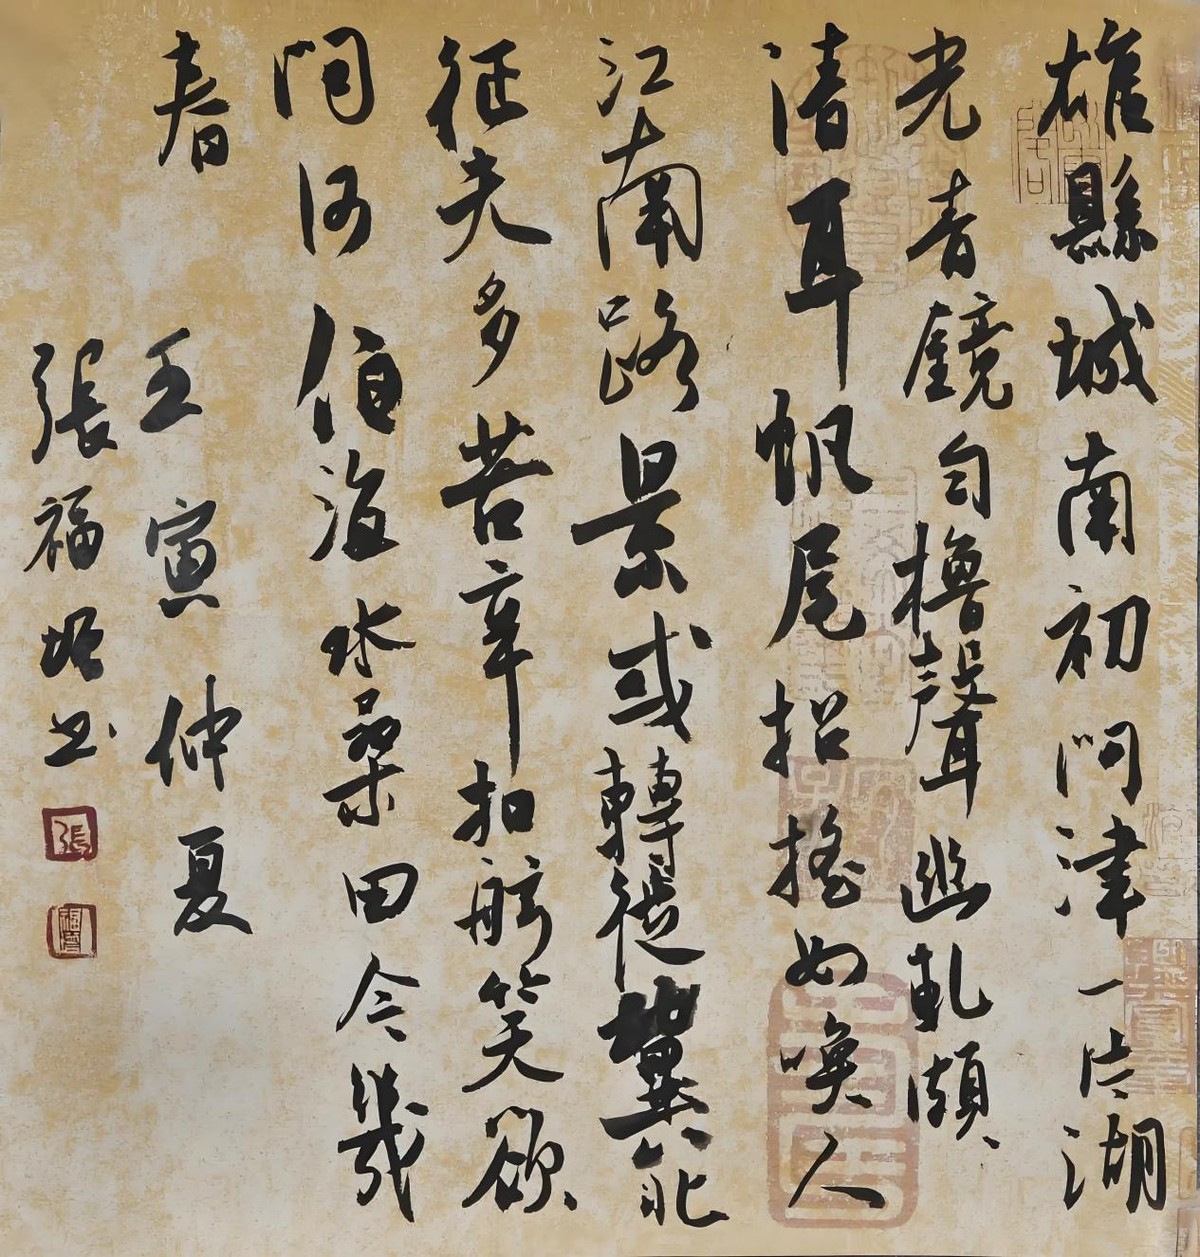 雄縣城南初問津一片湖
光青鏡勻櫓聲幽軋頗
清耳帆尾招搖如喚人
江南路景或轉徙冀北
征夫多苦辛扣舷笑天欲
問何伯海水桑田今幾
春
壬寅仲夏
張福增书
張